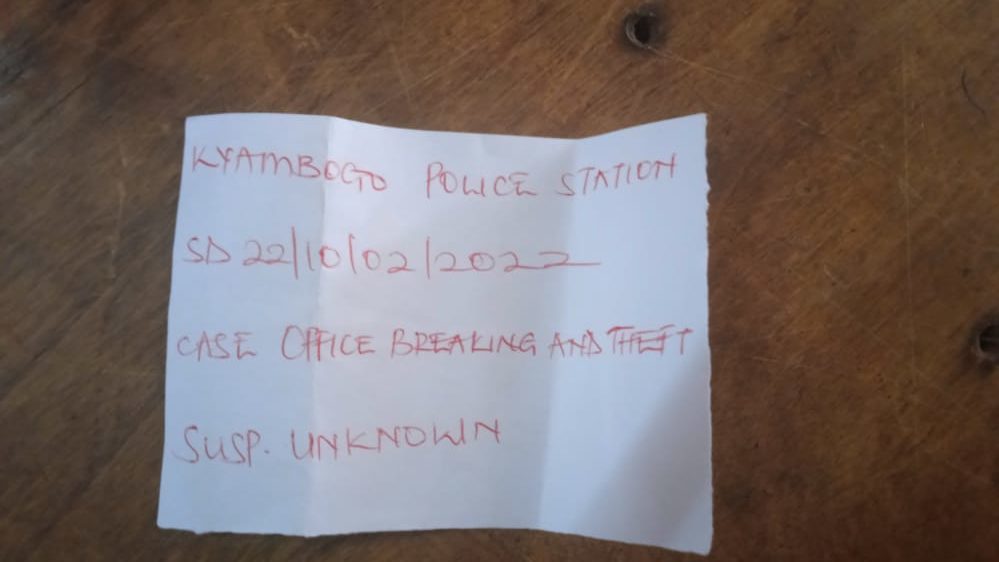 KYAMBOGO POLICE STATION
SD 22/10/02/2022
CASE OFFICE BREAKING AND THEFT
SUSP. UNKNOWN